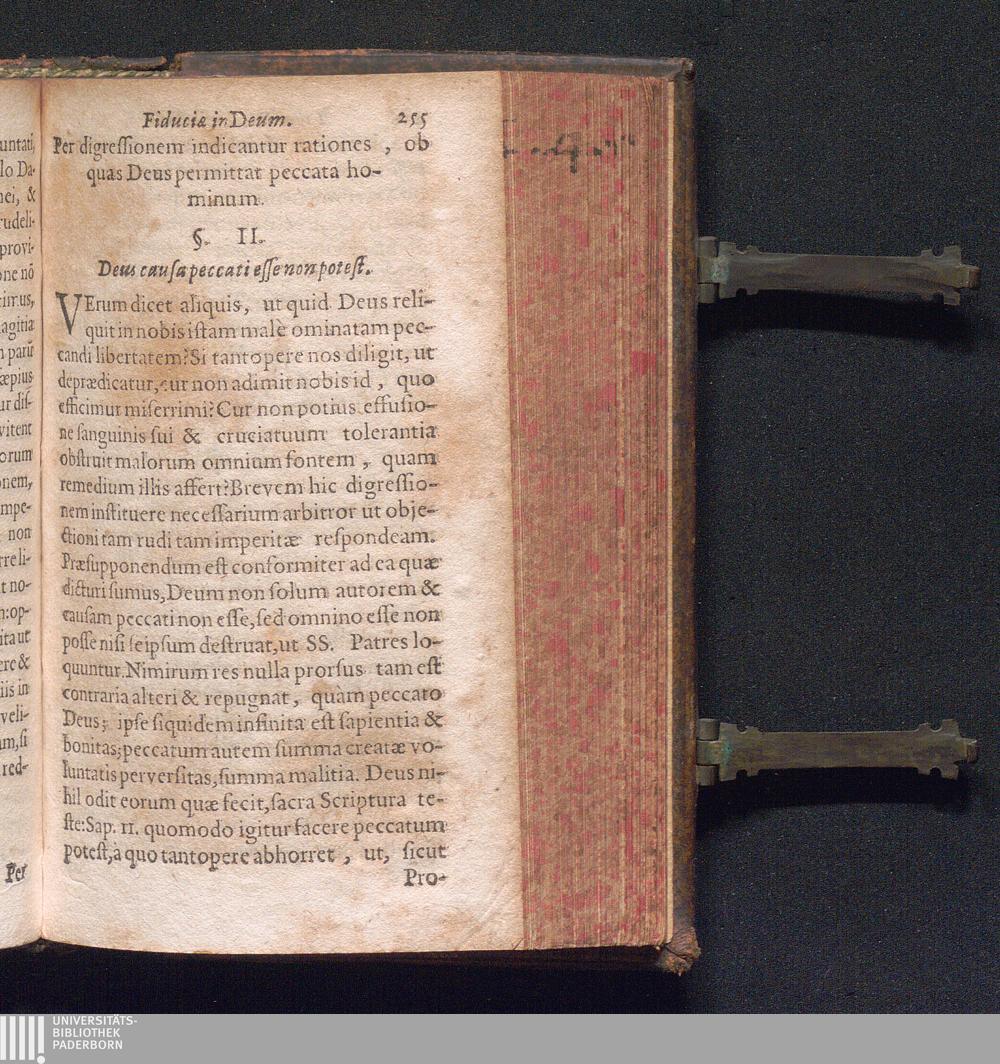 untati,
lo Da-
nei, &
rudeli-
provi-
one nō
imus,
agitia
n parũ
æpius
ur dis-
vitent
orum
onem,
mpe-
non
rreli-
t no-
n:op-
ita ut
ere &
iis in
veli-
um, si
red-
Per
Fiduciæ in Deum. 255
Per digressionem indicantur rationes, ob
quas Deus permittat peccata ho-
minum.
§. II.
Deus causa peccati esse non potest.
VErum dicet aliquis, ut quid Deus reli-
quit in nobis istam malè ominatam pec-
candi libertatem? Si tantopere nos diligit, ut
deprædicatur, cur non adimit nobis id, quo
efficimur miserrimi? Cur non potius effusio-
ne sanguinis sui & cruciatuum tolerantia
obstruit malorum omnium fontem, quam
remedium illis affert? Brevem hic digressio-
nem instituere necessarium arbitror ut obje-
ctioni tam rudi tam imperitæ respondeam.
Præsupponendum est conformiter ad ea quæ
dicturi sumus, Deum non solum autorem &
causam peccati non esse, sed omnino esse non
posse nisi seipsum destruat, ut SS. Patres lo-
quuntur. Nimirum res nulla prorsus tam est
contraria alteri & repugnat, quàm peccato
Deus; ipse siquidem infinita est sapientia &
bonitas; peccatum autem summa creatæ vo-
luntatis perversitas, summa malitia. Deus ni-
hil odit eorum quæ fecit, sacra Scriptura te-
ste: Sap. 11. quomodo igitur facere peccatum
potest, à quo tantopere abhorret, ut, sicut
Pro-
UNIVERSITÄTS-
BIBLIOTHEK
PADERBORN